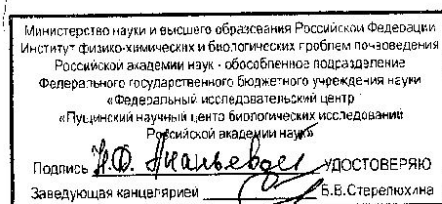 Министерство науки и высшего образования Российской Федерации
Институт физико-химических и биологических проблем почвоведения
Российской академии наук - обособленное подразделение
Федерального государственного бюджетного учреждения науки
«Федеральный исследовательский центр
«Пущинский научный центр биологических исследований
Российской академии наук»
Подпись УДОСТОВЕРЯЮ
Заведующая канцелярией Б.В.Стерелюхина